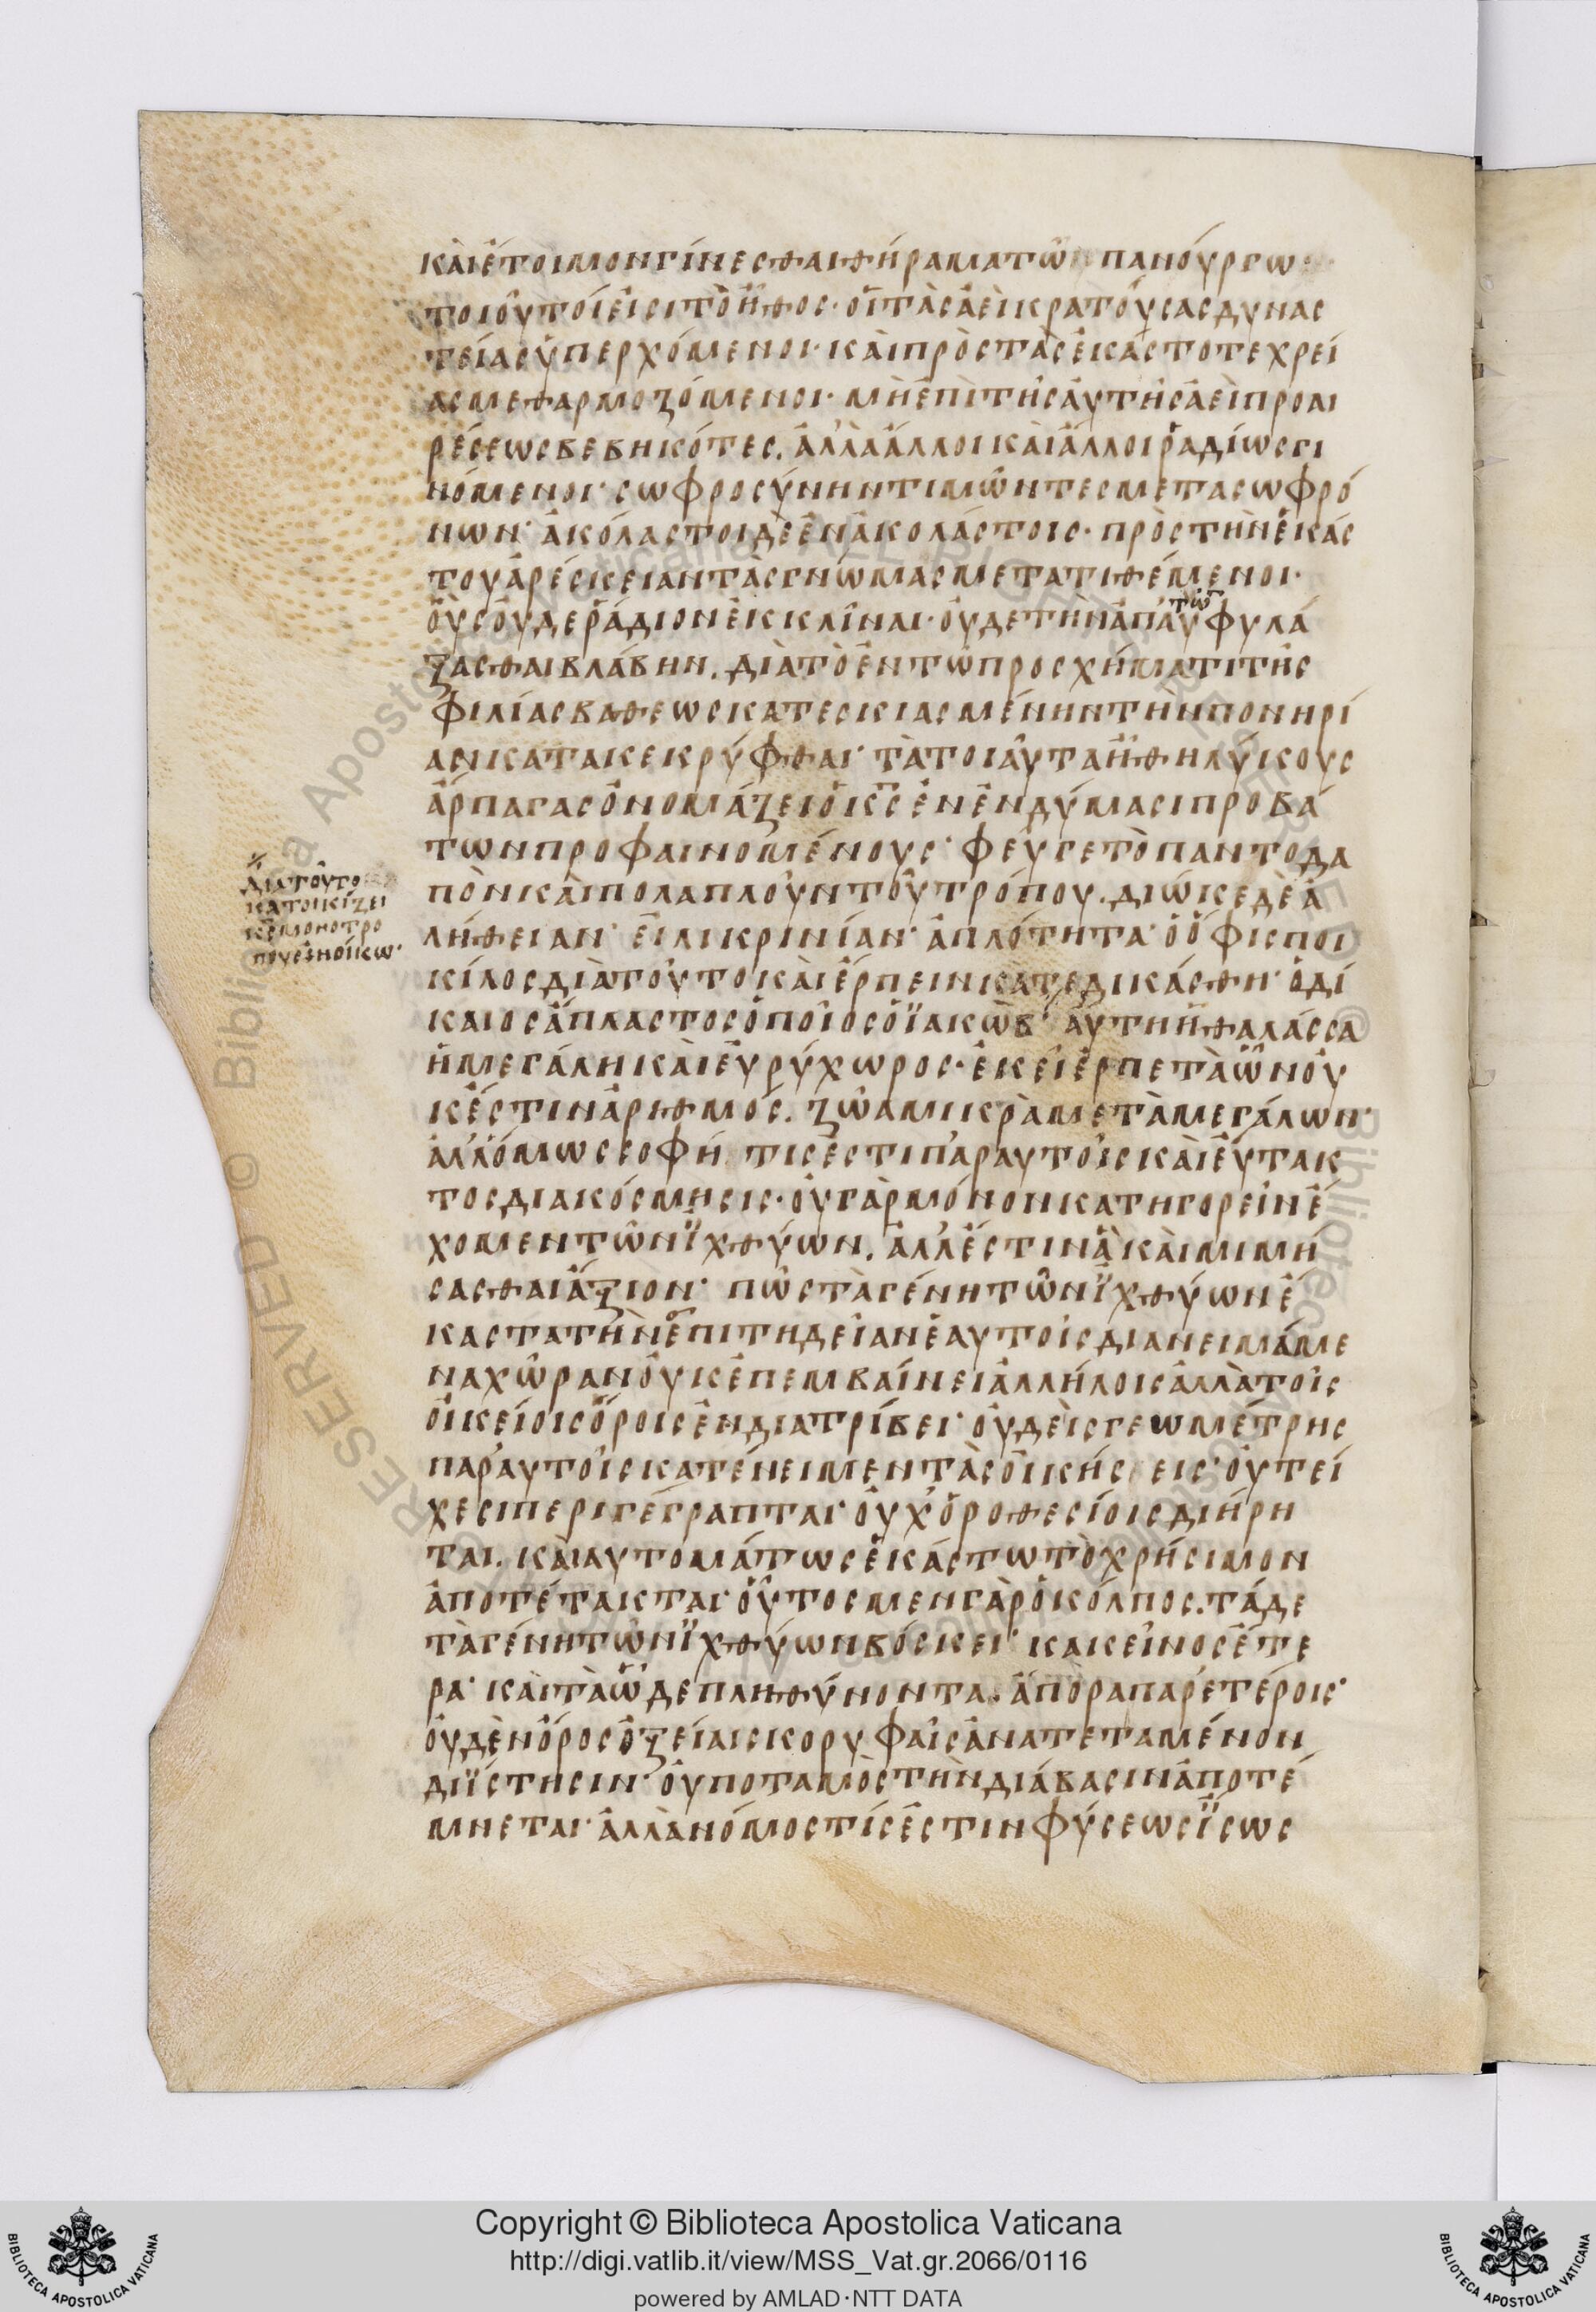 καὶ ἕτοιμον γίνεσθαι θήραμα τῶν πανούργω
τοιοῦτοί εἰσι τὸ ἦθος· οἱ τὰς ἀεὶ κρατούσας δυνας
τείας ὑπερχόμενοι· καὶ πρὸς τὰς ἑκάστοτε χρεί
ας μεθαρμοζόμενοι· μὴ ἐπὶ τῆς αὐτῆς ἀεὶ προαι
ρέσεως βεβηκότες. ἀλλὰ ἄλλοι καὶ ἄλλοι ῥαδίως γι
νόμενοι· σωφροσύνην τιμῶντες μετα σωφρό
νων· ἀκόλαστοι δὲ ἐν ἀκολάστοις· πρὸς τὴν ἑκάς
του ἀρέσκειαν τὰς γνώμας μετατιθέμενοι·
οὓς οὐδε ῥάδιον ἐκκλῖναι· οὐδε τὴν ἀπ' αὐτῶν φυλά
ξασθαι βλάβην. διὰ τὸ ἐν τῶ προσχήματι τῆς
φιλίας βαθεως κατεσκιασμένην τὴν πονηρί
αν κατακεκρύφθαι· τὰ τοιαῦτα ἤθη λύκους
ἅρπαγας ὀνομάζει ὁ κς ἐν ἐνδύμασι προβά
των προφαινομένους· φεῦγε τὸ παντοδα
πὸν καὶ πολαπλοῦν τοῦ τρόπου. δίωκε δὲ ἀ
λήθειαν· εἰλικρινίαν· ἁπλότητα· ὁ ὄφις ποι
κίλος διὰ τοῦτο καὶ ἕρπειν κατεδικάσθη· ὁ δί
καιος ἄπλαστος ὁποῖος ὁ ϊακώβ· αὕτη ἡ θαλάσσα
ἡ μεγάλη καὶ εὐρύχωρος· ἐκεῖ ἑρπετὰ ὧν οὐ
κ ἔστιν ἀριθμός. ζῶα μικρὰ μετὰ μεγάλων·
ἀλλ' ὅμως σοφή τις ἐστι παρ αυτοῖς καὶ εὔτακ
τος διακόσμησις· οὐ γὰρ μόνον κατηγορεῖν ἔ
χομεν τῶν ἰχθύων. ἀλλ' ἔστιν ἃ καὶ μιμή
σασθαι ἄξιον· πῶς τὰ γένη τῶν ἰχθύων ἕ
καστα τὴν ἐπιτηδείαν ἑαυτοῖς διανειμάμε
να χῶραν οὐκ ἐπεμβαίνει ἀλλήλοις ἀλλὰ τοῖς
οἰκείοις ὅροις ἐνδιατρίβει· οὐδεὶς γεωμέτρης
παρ' αυτοῖς κατένειμεν τὰς οἰκήσεις· οὐ τεί
χεσι περιγέγραπται· οὐχ' ὁροθεσίοις διήρη
ται. καὶ αυτομάτως ἑκάστω τὸ χρήσιμον
ἀποτέτακται· οὗτος μεν γὰρ ὁ κόλπος. τάδε
τὰ γένη τῶν ἰχθύων βόσκει· κακεῖνος ἕτε
ρα· καὶ τὰ ὧδε πληθύνοντα. ἄπορα παρ' ετέροις·
οὐδὲν ὄρος ὀξείαις κορυφαῖς ἀνατεταμένον
διΐστησιν· οὐ ποταμὸς τὴν διάβασιν ἀποτέ
μνεται· ἀλλὰ νόμος τίς ἐστιν φύσεως ἴσως
διατοῦτο
κατοικίζει
κς μονοτρο
πους ἐν οἴκω·
Copyright © Biblioteca Apostolica Vaticana
http://digi.vatlib.it/view/MSS_Vat.gr.2066/0116
powered by AMLAD·NTT DATA
BIBLIOTECA APOSTOLICA VATICANA
BIBLIOTECA APOSTOLICA VATICANA